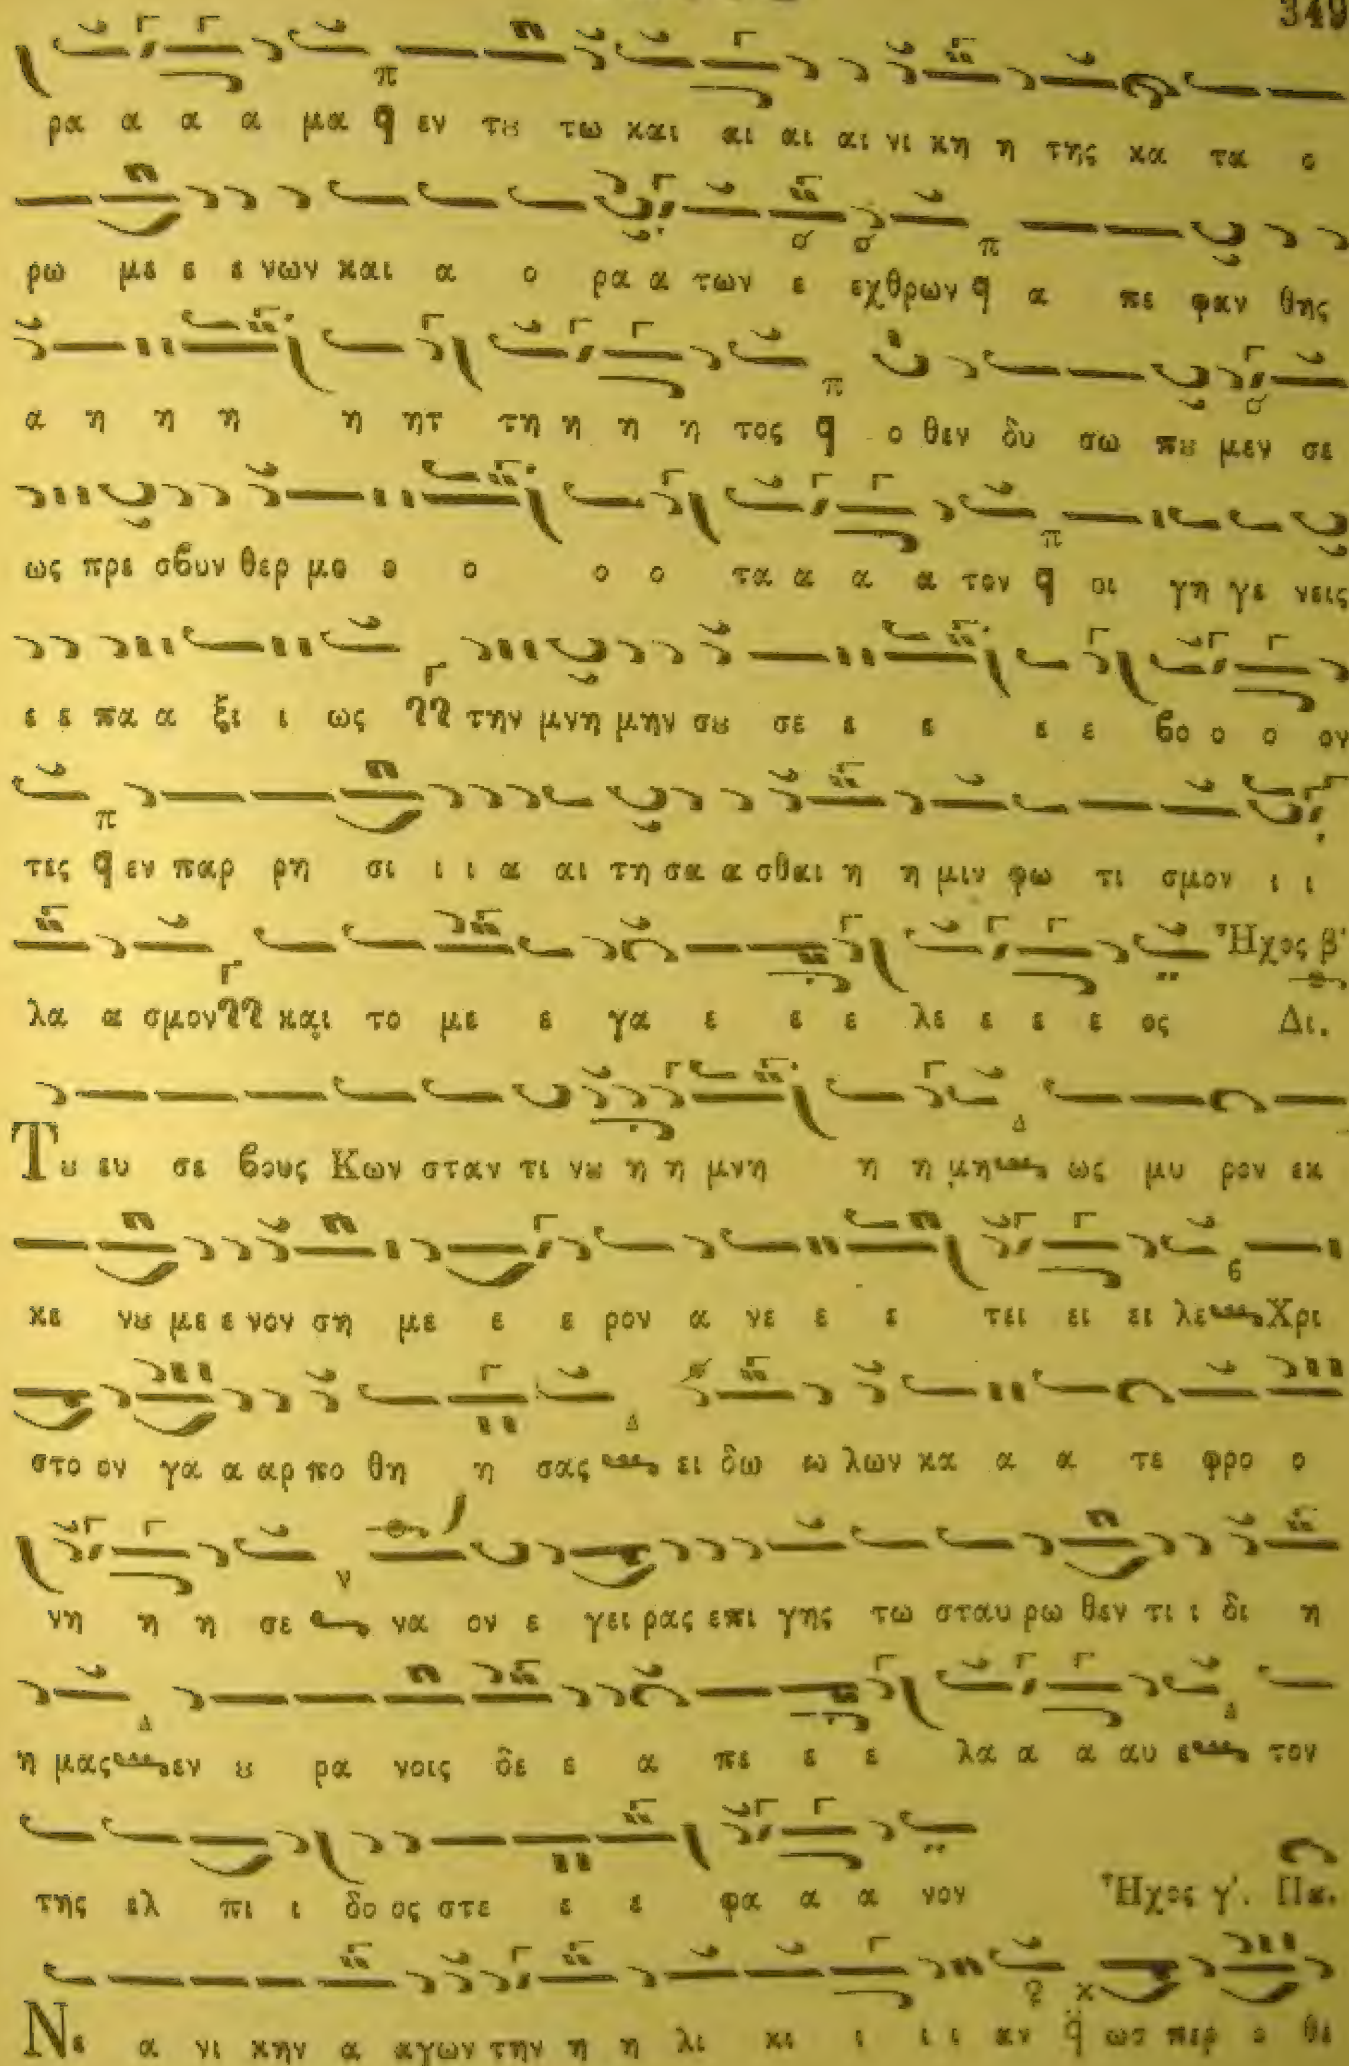 349
ρα α α α μα ϥ εν τȣ τω και αι αι αι νι κη η της κα τα ο
ρω με ε ε νων και α ο ρα α των ε εχθρων ϥ α πε φαν θης
α η η η η ητ τη η η η τος ϥ ο θεν δυ σω πȣ μεν σε
ως πρε σϐυν θερ μο ο ο ο ο τα α α α τον ϥ οι γη γε νεις
ε ε πα α ξι ι ως την μνη μην σȣ σε ε ε ε ε ϐο ο ο ον
τες ϥ εν παρ ρη σι ι ι α αι τη σα α σθαι η η μιν φω τι σμον ι ι
λα α σμον και το με ε γα ε ε ε λε ε ε ε ος Ἦχος β' Δι.
Τȣ ευ σε ϐους Κων σταν τι νȣ η η μνη η η μη ως μυ ρον εκ
κε νȣ με ε νον ση με ε ε ρον α νε ε ε τει ει ει λε Χρι
στο ον γα α αρ πο θη η σας ει δω ω λων κα α α τε φρο ο
νη η η σε να ον ε γει ρας επι γης τω σταυ ρω θεν τι ι δι η
η μας εν ȣ ρα νοις δε ε α πε ε ε λα α α αυ ε τον
της ελ πι ι δο ος στε ε ε φα α α νον Ἦχος γ'. Πα.
Νε α νι κην α αγων την η η λι κι ι ι ι αν ϥ ωσ περ ο θε